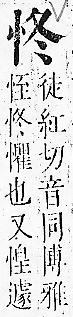 㤏徒紅切音同博雅
㤜㤏懼也又惶遽